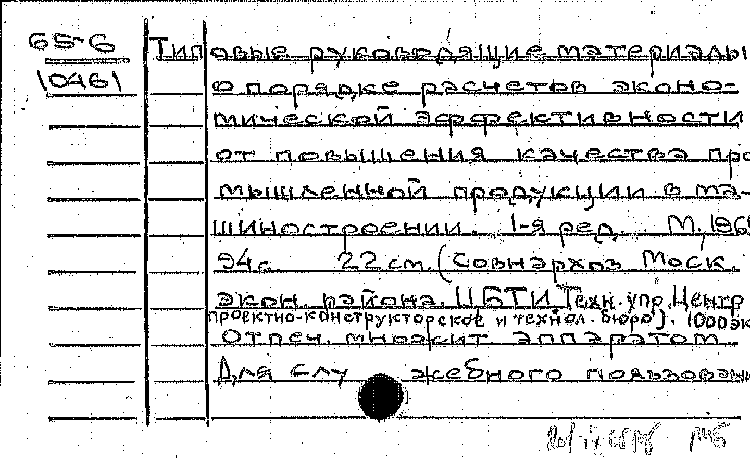 65-6
10461
Типовые руководящие материалы
о порядке расчетов эконо-
мической эффективности
от повышения качества про
мышленной продукции в ма-
шиностроении. 1-я ред. М. 196
94 с. 22 см. (Совнархоз Моск.
экон. района. ЦБТИ. Техн. упр. Центр
проектно-конструкторское и технол. бюро). 1000 эк
Отпеч. множит. аппаратом
Для служебного пользован